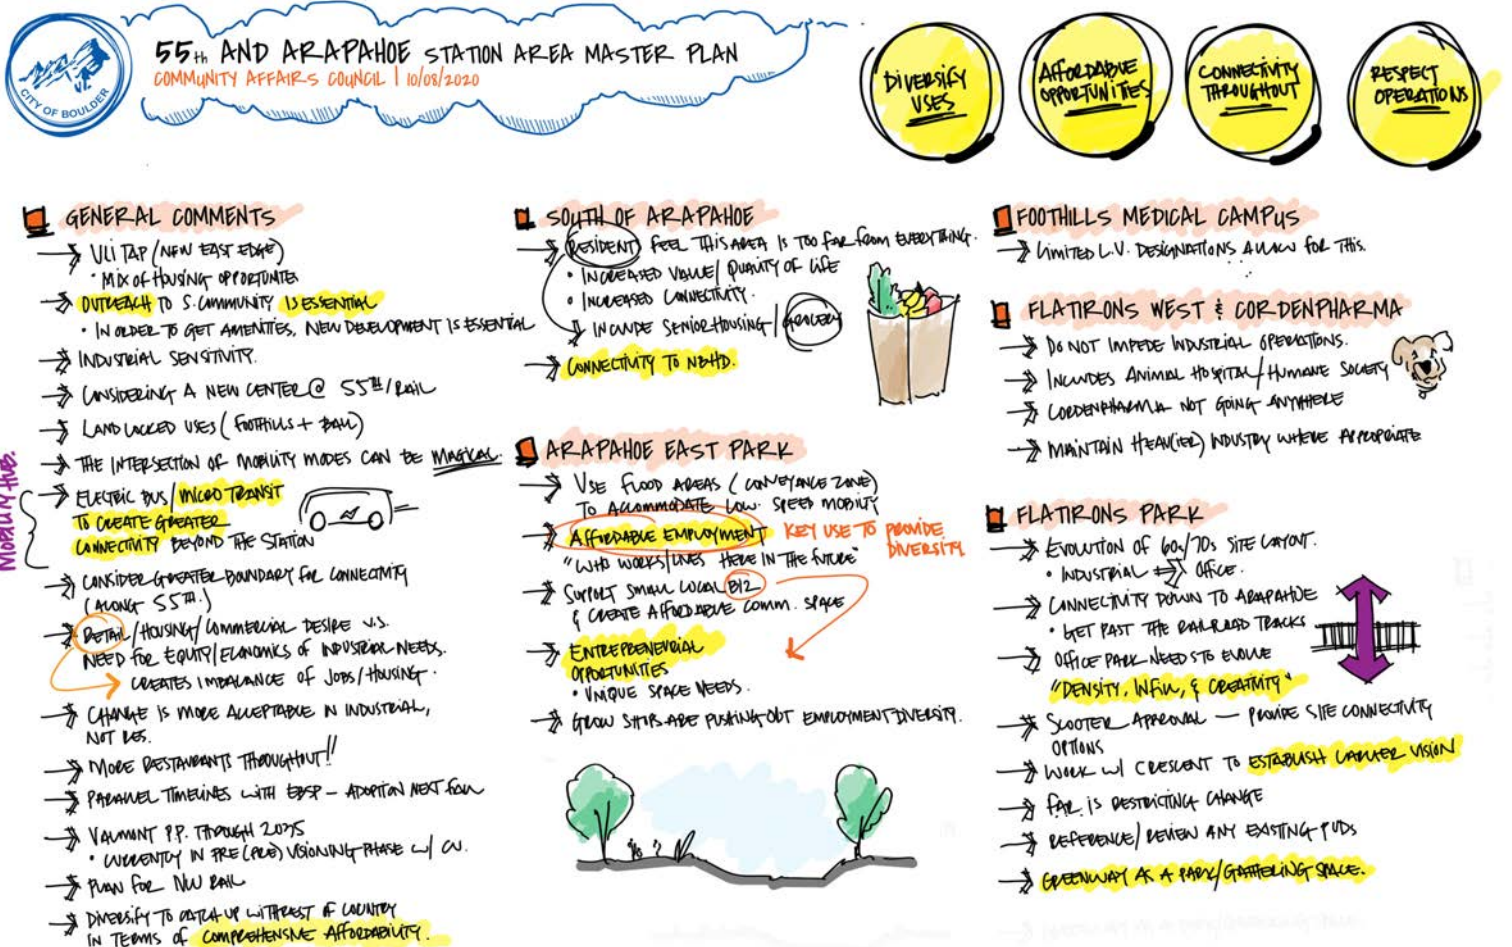 CITY OF BOULDER
55th AND ARAPAHOE STATION AREA MASTER PLAN
COMMUNITY AFFAIRS COUNCIL | 10/08/2020
DIVERSIFY
USES
AFFORDABLE
OPPORTUNITIES
CONNECTIVITY
THROUGHOUT
RESPECT
OPERATIONS
GENERAL COMMENTS
ULI TAP (NEW EAST EDGE)
• MIX OF HOUSING OPPORTUNITES
OUTREACH TO S. COMMUNITY IS ESSENTIAL
• IN ORDER TO GET AMENITIES, NEW DEVELOPMENT IS ESSENTIAL
INDUSTRIAL SENSITIVITY.
CONSIDERING A NEW CENTER @ 55TH/RAIL
LAND LOCKED USES (FOOTHILLS + BALL)
THE INTERSECTION OF MOBILITY MODES CAN BE MAGICAL.
MOBILITY HUB.
ELECTRIC BUS/MICRO TRANSIT
TO CREATE GREATER
CONNECTIVITY BEYOND THE STATION
CONSIDER GREATER BOUNDARY FOR CONNECTIVITY
(ALONG 55TH.)
RETAIL/HOUSING/COMMERCIAL DESIRE V.S.
NEED FOR EQUITY/ECONOMICS OF INDUSTRIAL NEEDS.
CREATES IMBALANCE OF JOBS/HOUSING.
CHANGE IS MORE ACCEPTABLE IN INDUSTRIAL,
NOT RES.
MORE RESTAURANTS THROUGHOUT!!
PARALLEL TIMELINES WITH EBSP - ADOPTION NEXT FALL
VALMONT P.P. THROUGH 2035
• CURRENTLY IN PRE (PRE) VISIONING PHASE W/ CU.
PLAN FOR NW RAIL
DIVERSIFY TO CATCH UP WITH REST OF COUNTRY
IN TERMS OF COMPREHENSIVE AFFORDABILITY.
SOUTH OF ARAPAHOE
RESIDENT FEEL THIS AREA IS TOO FAR FROM EVERYTHING.
• INCREASED VALUE/QUALITY OF LIFE
• INCREASED CONNECTIVITY.
INCLUDE SENIOR HOUSING/GROCERY
CONNECTIVITY TO NBHD.
ARAPAHOE EAST PARK
USE FLOOD AREAS (CONVEYANCE ZONE)
TO ACCOMMODATE LOW-SPEED MOBILITY
AFFORDABLE EMPLOYMENT KEY USE TO PROVIDE
DIVERSITY
"WHO WORKS/LIVES HERE IN THE FUTURE"
SUPPORT SMALL LOCAL BIZ
& CREATE AFFORDABLE COMM. SPACE
ENTREPRENEURIAL
OPPORTUNITIES
• UNIQUE SPACE NEEDS.
GROW SHOPS ARE PUSHING OUT EMPLOYMENT DIVERSITY.
FOOTHILLS MEDICAL CAMPUS
LIMITED L.V. DESIGNATIONS ALLOW FOR THIS.
FLATIRONS WEST & CORDENPHARMA
DO NOT IMPEDE INDUSTRIAL OPERATIONS.
INCLUDES ANIMAL HOSPITAL/HUMANE SOCIETY
CORDENPHARMA NOT GOING ANYWHERE
MAINTAIN HEAV(IER) INDUSTRY WHERE APPROPRIATE
FLATIRONS PARK
EVOLUTION OF 60s/70s SITE LAYOUT.
• INDUSTRIAL ⇒ OFFICE.
CONNECTIVITY DOWN TO ARAPAHOE
• GET PAST THE RAILROAD TRACKS
OFFICE PARK NEEDS TO EVOLVE
"DENSITY, INFILL, & CREATIVITY"
SCOOTER APPROVAL — PROVIDE SITE CONNECTIVITY
OPTIONS
WORK W/ CRESCENT TO ESTABLISH LARGER VISION
FAR IS RESTRICTING CHANGE
REFERENCE/REVIEW ANY EXISTING PUDS
GREENWAY AS A PARK/GATHERING SPACE.